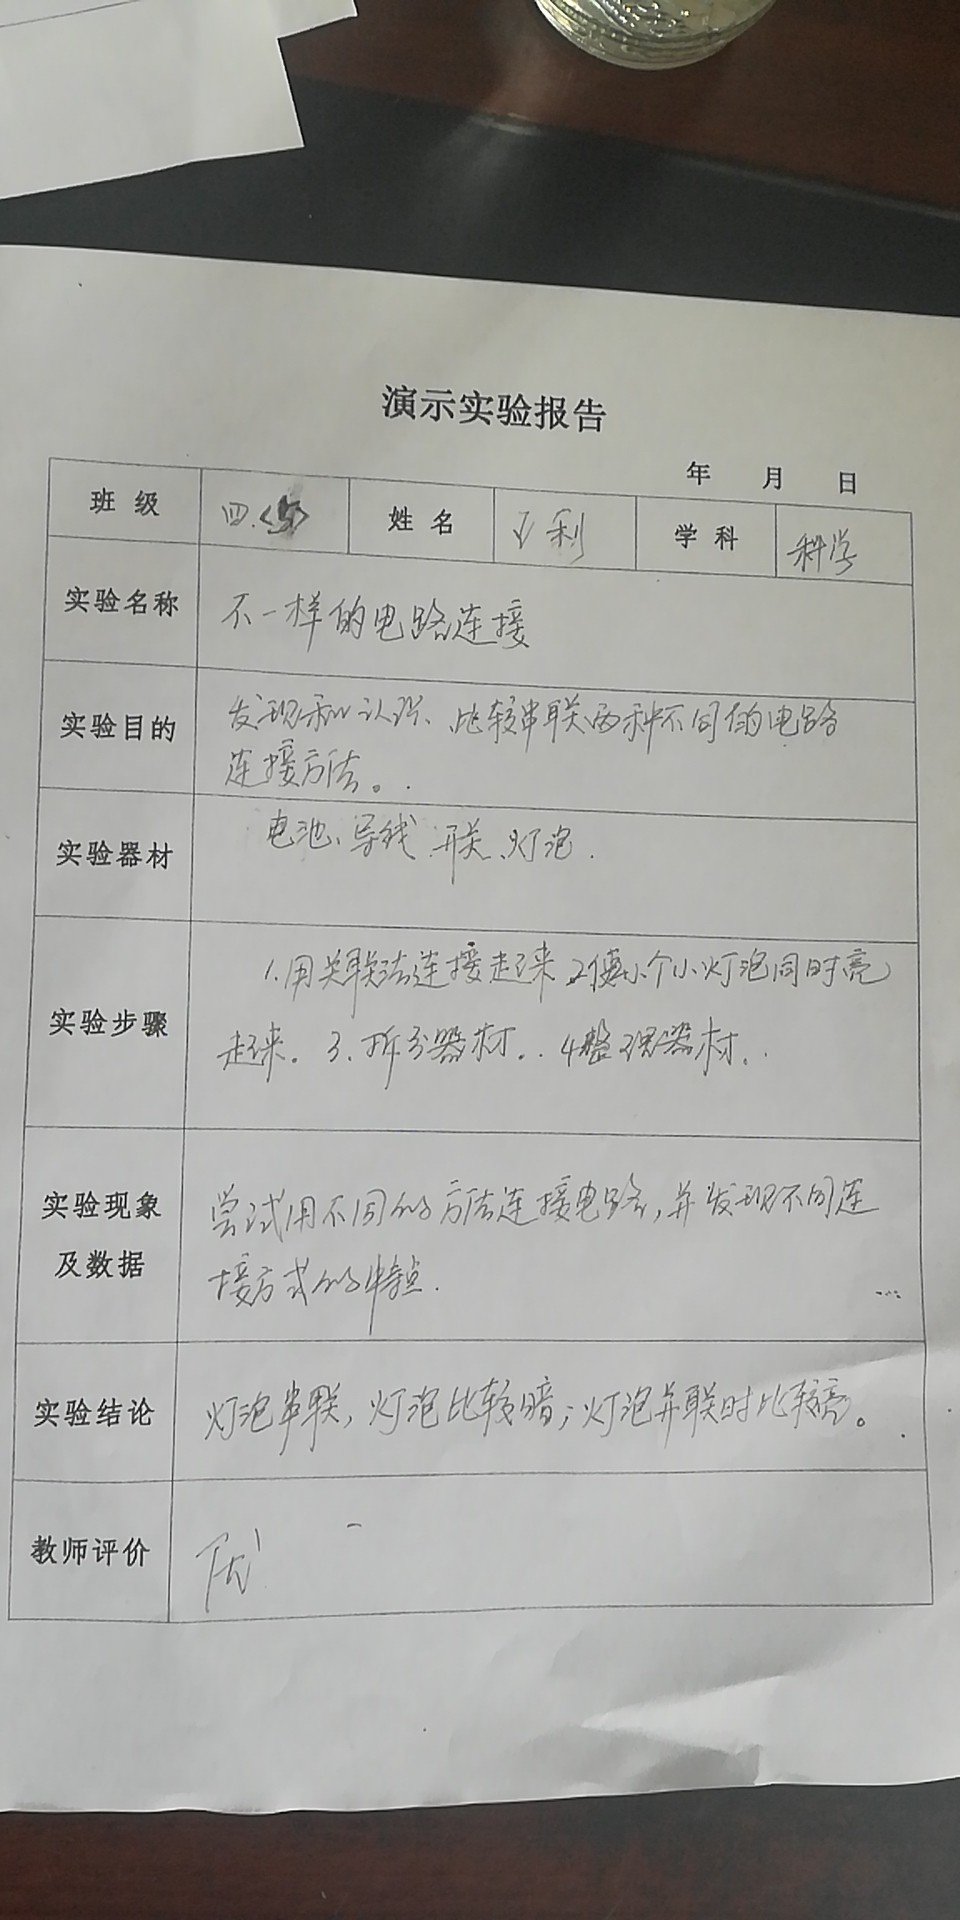 演示实验报告
年 月 日
班级 四.<5> 姓名 王利 学科 科学
实验名称 不一样的电路连接
实验目的 发现和认识、比较串联两种不同的电路
连接方法。
实验器材 电池、导线 开关、灯泡.
实验步骤 1.用 联法连接起来 2使 个小灯泡同时亮
起来。3.拆分器材. 4整理器材.
实验现象
及数据
尝试用不同的方法连接电路,并发现不同连
接方式的特点.
实验结论 灯泡串联,灯泡比较暗;灯泡并联时比较亮。
教师评价 优